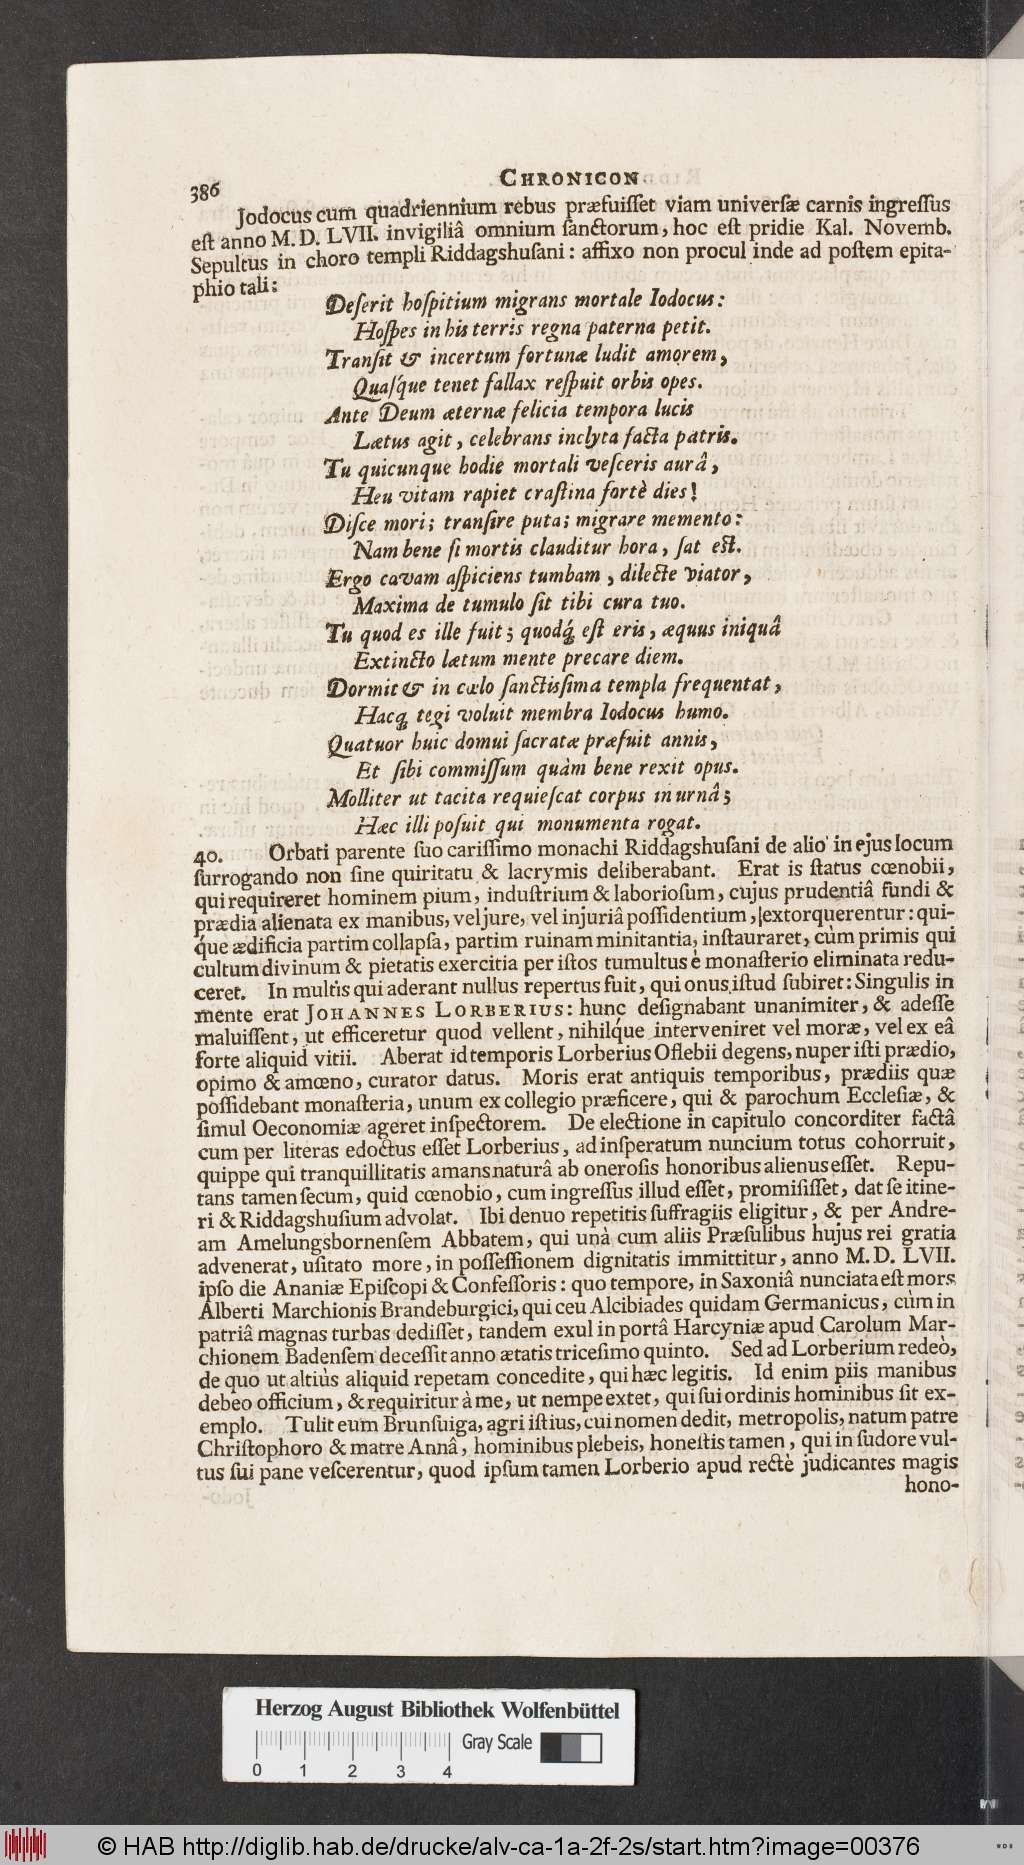 386
CHRONICON
Jodocus cum quadriennium rebus præfuiſſet viam univerſæ carnis ingreſſus
eſt anno M. D. LVII. in vigiliâ omnium ſanctorum, hoc eſt pridie Kal. Novemb.
Sepultus in choro templi Riddagshuſani: affixo non procul inde ad poſtem epita-
phio tali:
Deſerit hoſpitium migrans mortale Iodocus:
Hoſpes in his terris regna paterna petit.
Tranſit & incertum fortunæ ludit amorem,
Quaſque tenet fallax reſpuit orbis opes.
Ante Deum æternæ felicia tempora lucis
Lætus agit, celebrans inclyta facta patris.
Tu quicunque hodie mortali veſceris aurâ,
Heu vitam rapiet craſtina fortè dies!
Diſce mori; tranſire puta; migrare memento:
Nam bene ſi mortis clauditur hora, ſat eſt.
Ergo cavam aſpiciens tumbam, dilecte viator,
Maxima de tumulo ſit tibi cura tuo.
Tu quod es ille fuit; quodq́; eſt eris, æquus iniquâ
Extincto lætum mente precare diem.
Dormit & in cælo ſanctisſima templa frequentat,
Hacq; tegi voluit membra Iodocus humo.
Quatuor huic domui ſacratæ præfuit annis,
Et ſibi commiſſum quàm bene rexit opus.
Molliter ut tacita requieſcat corpus in urnâ;
Hæc illi poſuit qui monumenta rogat.
40. Orbati parente ſuo cariſſimo monachi Riddagshuſani de alio in ejus locum
ſurrogando non ſine quiritatu & lacrymis deliberabant. Erat is ſtatus cœnobii,
qui requireret hominem pium, induſtrium & laborioſum, cujus prudentiâ fundi &
prædia alienata ex manibus, vel jure, vel injuriâ poſſidentium, extorquerentur: qui-
q́ue ædificia partim collapſa, partim ruinam minitantia, inſtauraret, cùm primis qui
cultum divinum & pietatis exercitia per iſtos tumultus è monaſterio eliminata redu-
ceret. In multis qui aderant nullus repertus fuit, qui onus iſtud ſubiret: Singulis in
mente erat JOHANNES LORBERIUS: hunc deſignabant unanimiter, & adeſſe
maluiſſent, ut efficeretur quod vellent, nihilq́ue interveniret vel moræ, vel ex eâ
forte aliquid vitii. Aberat id temporis Lorberius Oflebii degens, nuper iſti prædio,
opimo & amœno, curator datus. Moris erat antiquis temporibus, prædiis quæ
poſſidebant monaſteria, unum ex collegio præficere, qui & parochum Eccleſiæ, &
ſimul Oeconomiæ ageret inſpectorem. De electione in capitulo concorditer factâ
cum per literas edoctus eſſet Lorberius, ad inſperatum nuncium totus cohorruit,
quippe qui tranquillitatis amans naturâ ab oneroſis honoribus alienus eſſet. Repu-
tans tamen ſecum, quid cœnobio, cum ingreſſus illud eſſet, promiſiſſet, dat ſe itine-
ri & Riddagshuſium advolat. Ibi denuo repetitis ſuffragiis eligitur, & per Andre-
am Amelungsbornenſem Abbatem, qui unà cum aliis Præſulibus hujus rei gratia
advenerat, uſitato more, in poſſeſſionem dignitatis immittitur, anno M. D. LVII.
ipſo die Ananiæ Epiſcopi & Confeſſoris: quo tempore, in Saxoniâ nunciata eſt mors
Alberti Marchionis Brandeburgici, qui ceu Alcibiades quidam Germanicus, cùm in
patriâ magnas turbas dediſſet, tandem exul in portâ Harcyniæ apud Carolum Mar-
chionem Badenſem deceſſit anno ætatis triceſimo quinto. Sed ad Lorberium redeò,
de quo ut altiùs aliquid repetam concedite, qui hæc legitis. Id enim piis manibus
debeo officium, & requiritur à me, ut nempe extet, qui ſui ordinis hominibus ſit ex-
emplo. Tulit eum Brunſuiga, agri iſtius, cui nomen dedit, metropolis, natum patre
Chriſtophoro & matre Annâ, hominibus plebeis, honeſtis tamen, qui in ſudore vul-
tus ſui pane veſcerentur, quod ipſum tamen Lorberio apud rectè judicantes magis
hono-
Herzog August Bibliothek Wolfenbüttel
Gray Scale
0 1 2 3 4
© HAB http://diglib.hab.de/drucke/alv-ca-1a-2f-2s/start.htm?image=00376